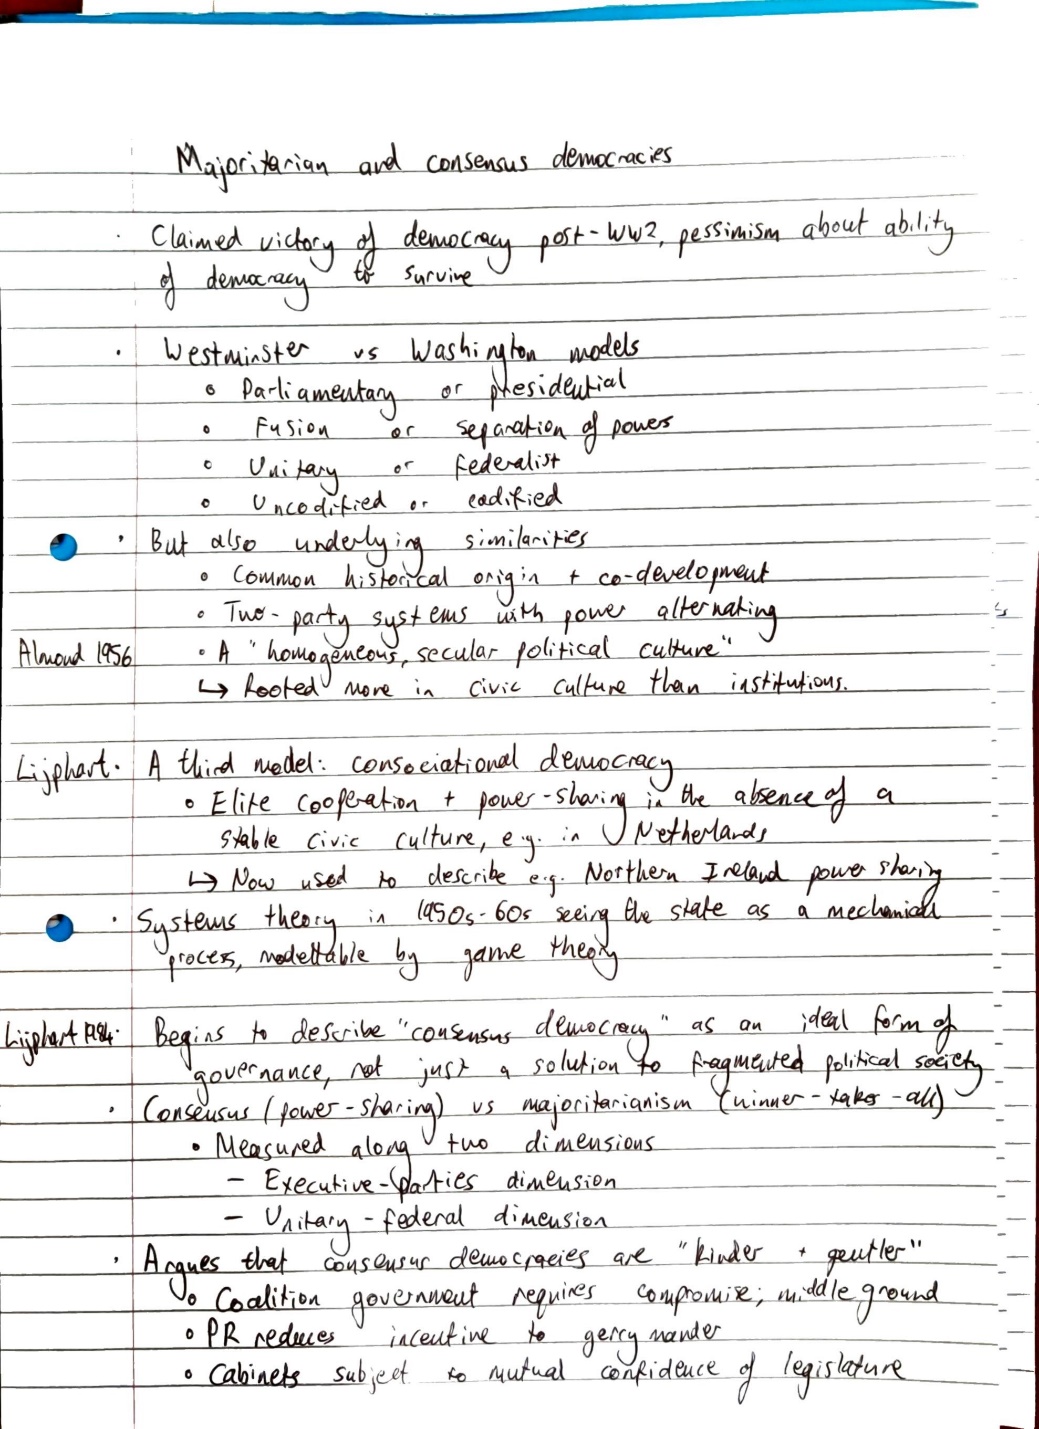 Majoritarian and consensus democracies
· Claimed victory of democracy post-WW2, pessimism about ability
of democracy to survive
· Westminster vs Washington models
∘ Parliamentary or presidential
∘ Fusion or separation of powers
∘ Unitary or federalist
∘ Uncodified or codified
· But also underlying similarities
∘ Common historical origin + co-development
∘ Two-party systems with power alternating
Almond 1956 ∘ A "homogeneous, secular political culture"
↳ Rooted more in civic culture than institutions.
Lijphart · A third model: consociational democracy
∘ Elite cooperation + power-sharing in the absence of a
stable civic culture, e.g. in Netherlands
↳ Now used to describe e.g. Northern Ireland power sharing
· Systems theory in 1950s-60s seeing the state as a mechanical
process, modellable by game theory
Lijphart 1984 · Begins to describe "consensus democracy" as an ideal form of
governance, not just a solution to fragmented political society
· Consensus (power-sharing) vs majoritarianism (winner-takes-all)
∘ Measured along two dimensions
– Executive-parties dimension
– Unitary-federal dimension
· Argues that consensus democracies are "kinder + gentler"
∘ Coalition government requires compromise; middle ground
∘ PR reduces incentive to gerrymander
∘ Cabinets subject to mutual confidence of legislature